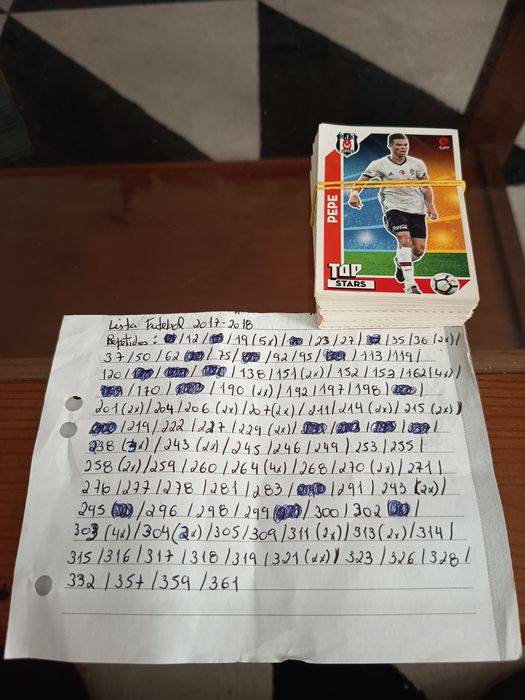 GIPF
PEPE
TOP
STARS
Lista Futebol 2017-2018
Repetidos: /12/ /19(5x)/ /23/27/ /35/36(2x)/
37/50/62 /75/ /92/95/ /113/119/
120/ / / /138/151(2x)/152/159/162(4x)/
/170/ /190(2x)/192/197/198/
201(2x)/204/206(2x)/207(2x)/211/214(2x)/215(2x)/
/219/222/227/229(2x)/ / / / /
238(3x)/243(2x)/245/246/249/253/255/
258(2x)/259/260/264(4x)/268/270(2x)/271/
276/277/278/281/283/ /291/293(2x)/
295 /296/298/299 /300/302
303(4x)/304(2x)/305/309/311(2x)/313(2x)/314/
315/316/317/318/319/321(2x)/323/326/328/
332/357/359/361